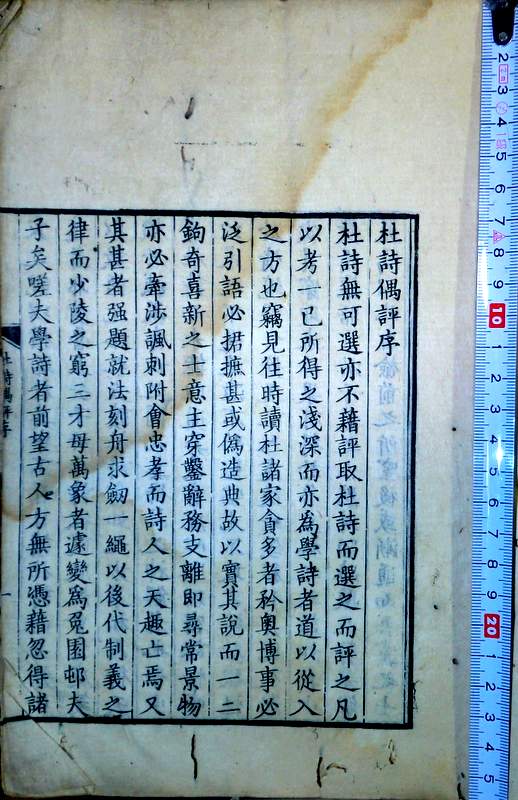 杜詩偶評序
杜詩無可選亦不藉評取杜詩而選之而評之凡
以考一已所得之淺深而亦為學詩者道以從入
之方也竊見往時讀杜諸家貪多者矜奧博事必
泛引語必捃摭甚或偽造典故以實其說而一二
鉤奇喜新之士意主穿鑿辭務支離即尋常景物
亦必牽涉諷刺附會忠孝而詩人之天趣亡焉又
其甚者强題就法刻舟求劒一繩以後代制義之
律而少陵之窮三才母萬象者遽變爲兔園邨夫
子矣嗟夫學詩者前望古人方無所憑藉忽得諸
杜詩偶評序
一
2
3
4
5
6
7
8
9
10
1
2
3
4
5
6
7
8
9
20
1
2
3
4
5